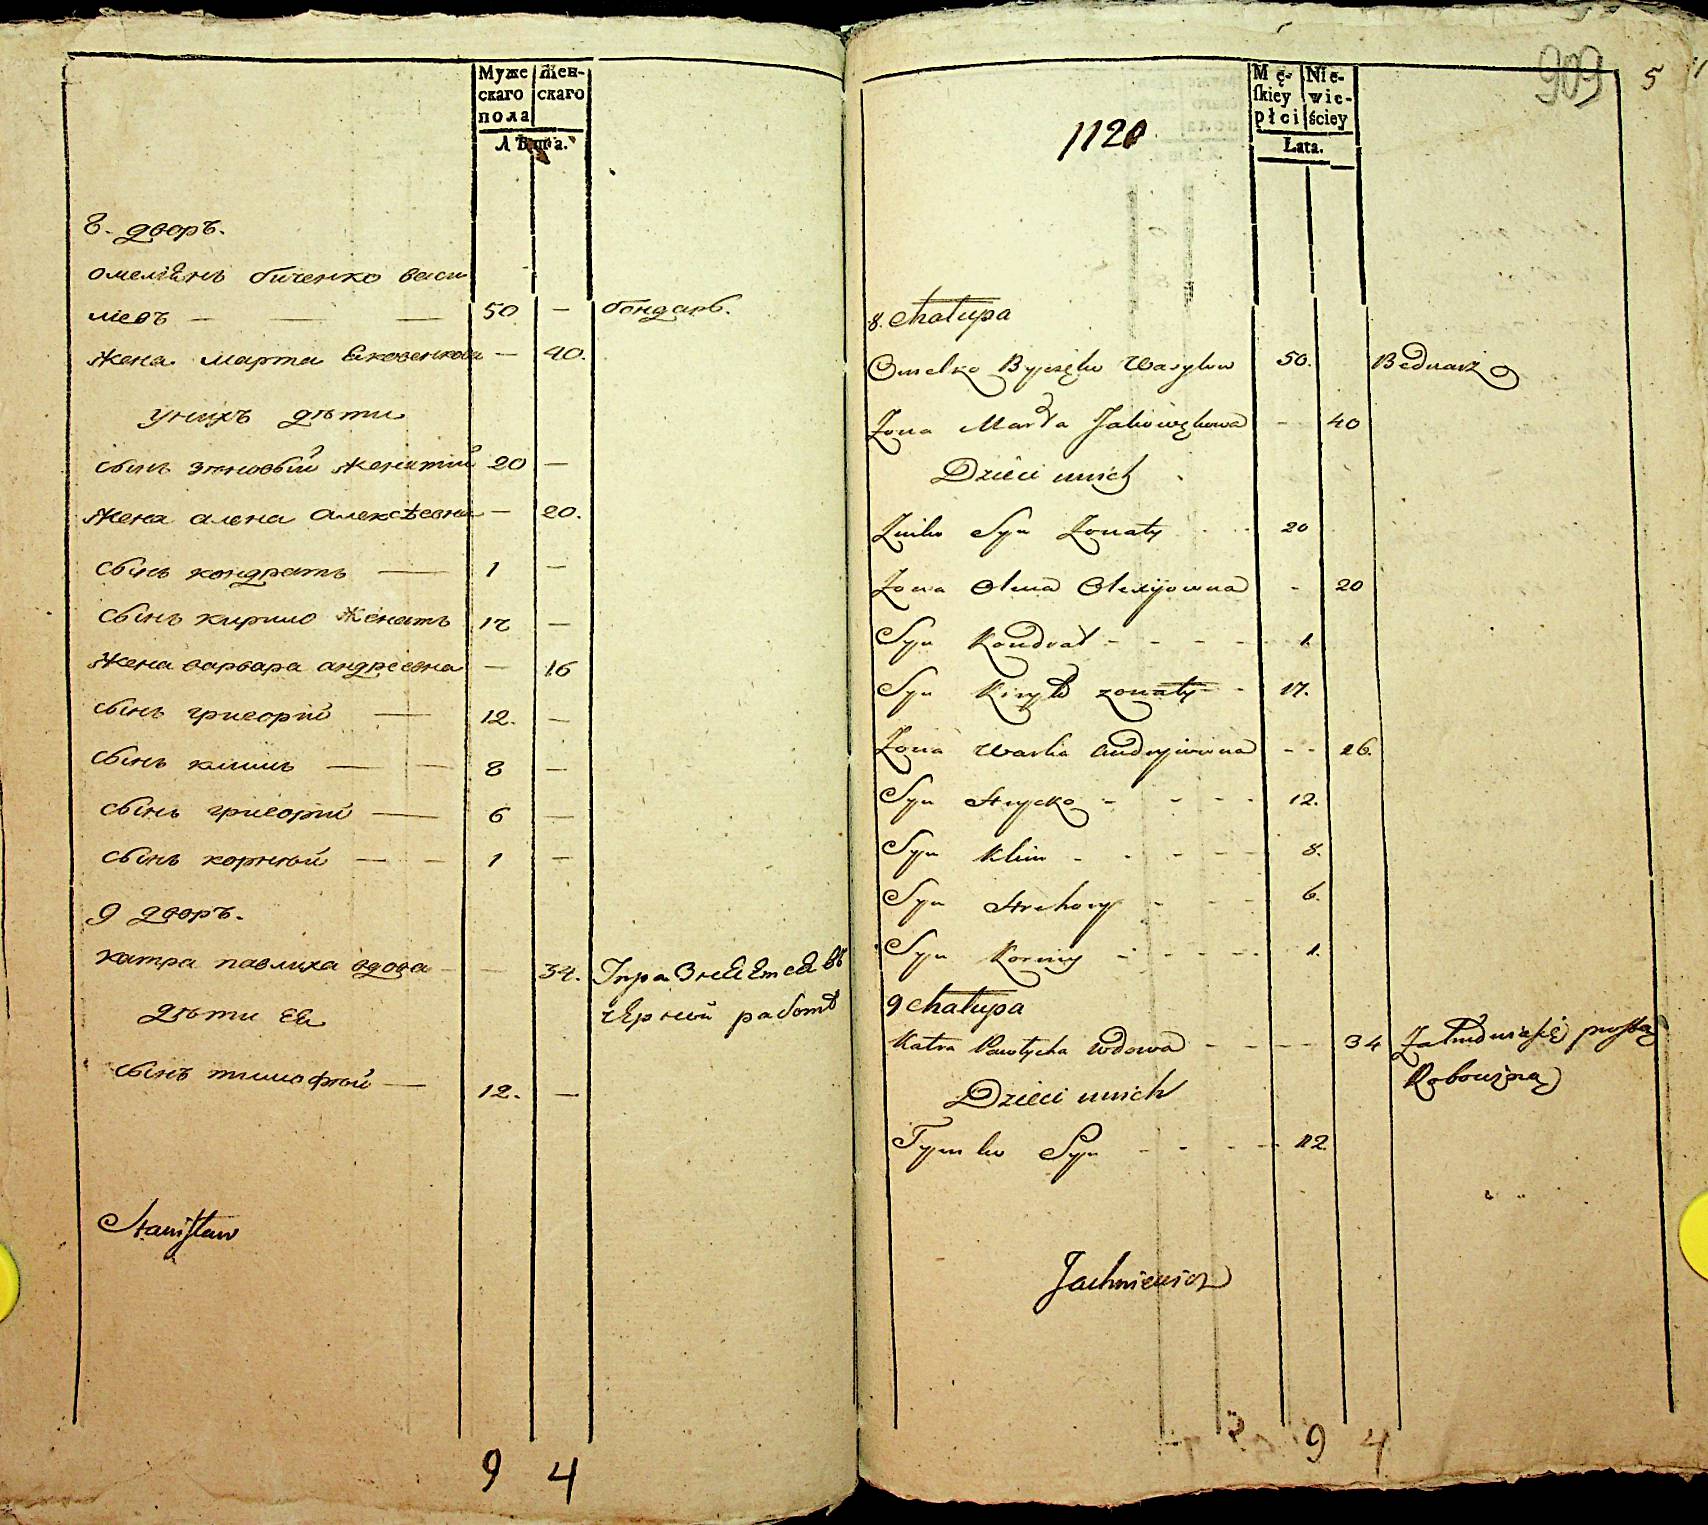 Муже Жен-
скаго скаго
пола
Лѣта.
8. дворъ.
омелянъ биченко васи
лиевъ — — — 50 — бондарь.
жена марта Яковенкова — 40.
унихъ дѣти
сынъ зѣновый женатий 20 —
жена алена алексѣевна — 20.
сынъ кондратъ — 1 —
сынъ кирило женатъ 17 —
жена варвара андреевна — 16
сынъ григорий — 12. —
сынъ климъ — — 8 —
сынъ григорий — 6 —
сынъ корней — — 1 —
9 дворъ.
катра павлиха вдова — — 34. упражняется въ
дѣти ея черной работѣ
сынъ тимофей — 12. —
Stanisław
9 4
909 5
1120
Mę- Nie-
skiey wie-
płci ściey
Lata.
8. chałupa
Omelko Byczęko Wasylow 50. Bednarz
Zona Marta Jakowękowa - 40
Dzieci unich
Zinko Syn Zonaty 20
Zona Olena Olexijowna - 20
Syn Kondrat - - - - 1.
Syn Kiryło zonaty - - 17.
Zona Warka Andryiwna - - 16.
Syn Hrycko - - - - 12.
Syn Klim - - - - - 8.
Syn Hrehory - - - 6.
Syn Korniy - - - - - 1.
9 chałupa
Katra Pawłycha Wdowa - - - - 34 Zatrudniaśię prostą
Dzieci unich Robocizną
Tymko Syn - - - - 12.
Jachniewicz
9 4